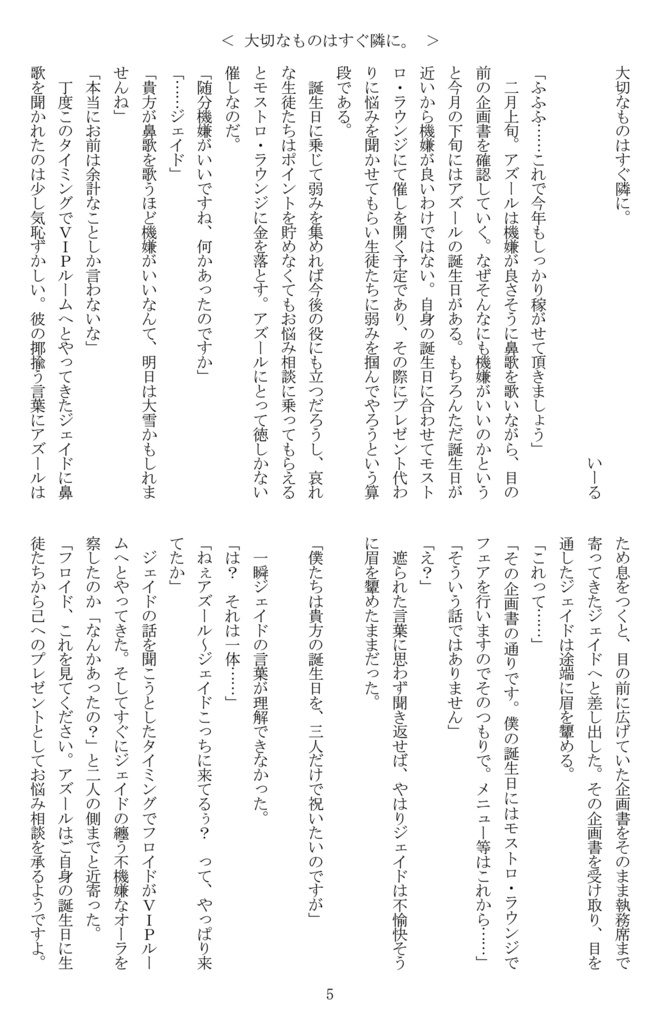 ＜ 大切なものはすぐ隣に。 ＞
大切なものはすぐ隣に。
いーる
「ふふふ……これで今年もしっかり稼がせて頂きましょう」
　二月上旬。アズールは機嫌が良さそうに鼻歌を歌いながら、目の
前の企画書を確認していく。なぜそんなにも機嫌がいいのかという
と今月の下旬にはアズールの誕生日がある。もちろんただ誕生日が
近いから機嫌が良いわけではない。自身の誕生日に合わせてモスト
ロ・ラウンジにて催しを開く予定であり、その際にプレゼント代わ
りに悩みを聞かせてもらい生徒たちに弱みを掴んでやろうという算
段である。
　誕生日に乗じて弱みを集めれば今後の役にも立つだろうし、哀れ
な生徒たちはポイントを貯めなくてもお悩み相談に乗ってもらえる
とモストロ・ラウンジに金を落とす。アズールにとって徳しかない
催しなのだ。
「随分機嫌がいいですね、何かあったのですか」
「……ジェイド」
「貴方が鼻歌を歌うほど機嫌がいいなんて、明日は大雪かもしれま
せんね」
「本当にお前は余計なことしか言わないな」
　丁度このタイミングでＶＩＰルームへとやってきたジェイドに鼻
歌を聞かれたのは少し気恥ずかしい。彼の揶揄う言葉にアズールは
ため息をつくと、目の前に広げていた企画書をそのまま執務席まで
寄ってきたジェイドへと差し出した。その企画書を受け取り、目を
通したジェイドは途端に眉を顰める。
「これって……」
「その企画書の通りです。僕の誕生日にはモストロ・ラウンジで
フェアを行いますのでそのつもりで。メニュー等はこれから……」
「そういう話ではありません」
「え？」
　遮られた言葉に思わず聞き返せば、やはりジェイドは不愉快そう
に眉を顰めたままだった。
「僕たちは貴方の誕生日を、三人だけで祝いたいのですが」
　一瞬ジェイドの言葉が理解できなかった。
「は？　それは一体……」
「ねぇアズール～ジェイドこっちに来てるぅ？　って、やっぱり来
てたか」
　ジェイドの話を聞こうとしたタイミングでフロイドがＶＩＰルー
ムへとやってきた。そしてすぐにジェイドの纏う不機嫌なオーラを
察したのか「なんかあったの？」と二人の側までと近寄った。
「フロイド、これを見てください。アズールはご自身の誕生日に生
徒たちから己へのプレゼントとしてお悩み相談を承るようですよ。
5